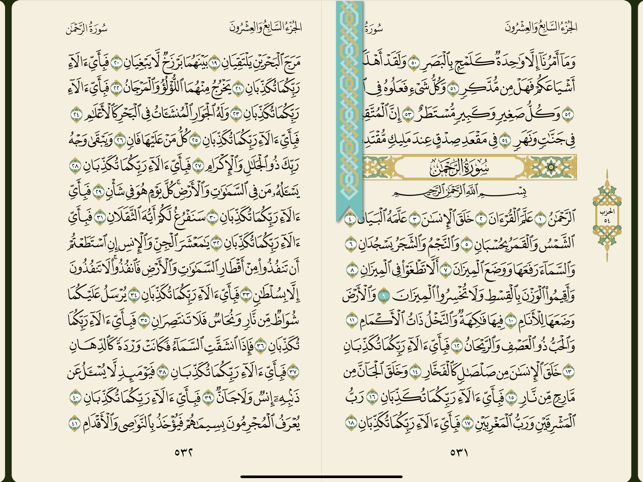 الجُزْءُ السَّابِعُ وَالعِشْرُونَ سُورَةُ
وَمَآ أَمْرُنَآ إِلَّا وَٰحِدَةٌ كَلَمْحٍۭ بِٱلْبَصَرِ ٥٠ وَلَقَدْ أَهْلَ
أَشْيَاعَكُمْ فَهَلْ مِن مُّدَّكِرٍ ٥١ وَكُلُّ شَىْءٍ فَعَلُوهُ فِى
٥٢ وَكُلُّ صَغِيرٍ وَكَبِيرٍ مُّسْتَطَرٌ ٥٣ إِنَّ ٱلْمُتَّقِ
فِى جَنَّٰتٍ وَنَهَرٍ ٥٤ فِى مَقْعَدِ صِدْقٍ عِندَ مَلِيكٍ مُّقْتَدِ
سُورَةُ الرَّحْمَٰن
بِسْمِ ٱللَّهِ ٱلرَّحْمَٰنِ ٱلرَّحِيمِ
ٱلرَّحْمَٰنُ ١ عَلَّمَ ٱلْقُرْءَانَ ٢ خَلَقَ ٱلْإِنسَٰنَ ٣ عَلَّمَهُ ٱلْبَيَانَ ٤
ٱلشَّمْسُ وَٱلْقَمَرُ بِحُسْبَانٍ ٥ وَٱلنَّجْمُ وَٱلشَّجَرُ يَسْجُدَانِ ٦
وَٱلسَّمَآءَ رَفَعَهَا وَوَضَعَ ٱلْمِيزَانَ ٧ أَلَّا تَطْغَوْا۟ فِى ٱلْمِيزَانِ ٨
وَأَقِيمُوا۟ ٱلْوَزْنَ بِٱلْقِسْطِ وَلَا تُخْسِرُوا۟ ٱلْمِيزَانَ ٩ وَٱلْأَرْضَ
وَضَعَهَا لِلْأَنَامِ ١٠ فِيهَا فَٰكِهَةٌ وَٱلنَّخْلُ ذَاتُ ٱلْأَكْمَامِ ١١
وَٱلْحَبُّ ذُو ٱلْعَصْفِ وَٱلرَّيْحَانُ ١٢ فَبِأَىِّ ءَالَآءِ رَبِّكُمَا تُكَذِّبَانِ
١٣ خَلَقَ ٱلْإِنسَٰنَ مِن صَلْصَٰلٍ كَٱلْفَخَّارِ ١٤ وَخَلَقَ ٱلْجَآنَّ مِن
مَّارِجٍ مِّن نَّارٍ ١٥ فَبِأَىِّ ءَالَآءِ رَبِّكُمَا تُكَذِّبَانِ ١٦ رَبُّ
ٱلْمَشْرِقَيْنِ وَرَبُّ ٱلْمَغْرِبَيْنِ ١٧ فَبِأَىِّ ءَالَآءِ رَبِّكُمَا تُكَذِّبَانِ ١٨
٥٣١
الحزب
٥٤
الجُزْءُ السَّابِعُ وَالعِشْرُونَ سُورَةُ الرَّحْمَٰن
مَرَجَ ٱلْبَحْرَيْنِ يَلْتَقِيَانِ ١٩ بَيْنَهُمَا بَرْزَخٌ لَّا يَبْغِيَانِ ٢٠ فَبِأَىِّ ءَالَآءِ
رَبِّكُمَا تُكَذِّبَانِ ٢١ يَخْرُجُ مِنْهُمَا ٱللُّؤْلُؤُ وَٱلْمَرْجَانُ ٢٢ فَبِأَىِّ ءَالَآءِ
رَبِّكُمَا تُكَذِّبَانِ ٢٣ وَلَهُ ٱلْجَوَارِ ٱلْمُنشَـَٔاتُ فِى ٱلْبَحْرِ كَٱلْأَعْلَٰمِ ٢٤
فَبِأَىِّ ءَالَآءِ رَبِّكُمَا تُكَذِّبَانِ ٢٥ كُلُّ مَنْ عَلَيْهَا فَانٍ ٢٦ وَيَبْقَىٰ وَجْهُ
رَبِّكَ ذُو ٱلْجَلَٰلِ وَٱلْإِكْرَامِ ٢٧ فَبِأَىِّ ءَالَآءِ رَبِّكُمَا تُكَذِّبَانِ ٢٨
يَسْـَٔلُهُۥ مَن فِى ٱلسَّمَٰوَٰتِ وَٱلْأَرْضِ كُلَّ يَوْمٍ هُوَ فِى شَأْنٍ ٢٩ فَبِأَىِّ
ءَالَآءِ رَبِّكُمَا تُكَذِّبَانِ ٣٠ سَنَفْرُغُ لَكُمْ أَيُّهَ ٱلثَّقَلَانِ ٣١ فَبِأَىِّ
ءَالَآءِ رَبِّكُمَا تُكَذِّبَانِ ٣٢ يَٰمَعْشَرَ ٱلْجِنِّ وَٱلْإِنسِ إِنِ ٱسْتَطَعْتُمْ
أَن تَنفُذُوا۟ مِنْ أَقْطَارِ ٱلسَّمَٰوَٰتِ وَٱلْأَرْضِ فَٱنفُذُوا۟ لَا تَنفُذُونَ
إِلَّا بِسُلْطَٰنٍ ٣٣ فَبِأَىِّ ءَالَآءِ رَبِّكُمَا تُكَذِّبَانِ ٣٤ يُرْسَلُ عَلَيْكُمَا
شُوَاظٌ مِّن نَّارٍ وَنُحَاسٌ فَلَا تَنتَصِرَانِ ٣٥ فَبِأَىِّ ءَالَآءِ رَبِّكُمَا
تُكَذِّبَانِ ٣٦ فَإِذَا ٱنشَقَّتِ ٱلسَّمَآءُ فَكَانَتْ وَرْدَةً كَٱلدِّهَانِ
٣٧ فَبِأَىِّ ءَالَآءِ رَبِّكُمَا تُكَذِّبَانِ ٣٨ فَيَوْمَئِذٍ لَّا يُسْـَٔلُ عَن
ذَنۢبِهِۦٓ إِنسٌ وَلَا جَآنٌّ ٣٩ فَبِأَىِّ ءَالَآءِ رَبِّكُمَا تُكَذِّبَانِ ٤٠
يُعْرَفُ ٱلْمُجْرِمُونَ بِسِيمَٰهُمْ فَيُؤْخَذُ بِٱلنَّوَٰصِى وَٱلْأَقْدَامِ ٤١
٥٣٢